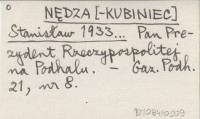 NĘDZA [-KUBINIEC]
Stanisław 1933... Pan Pre-
zydent Rzeczypospolitej
na Podhalu. – Gaz. Podh.
21, nr 8.